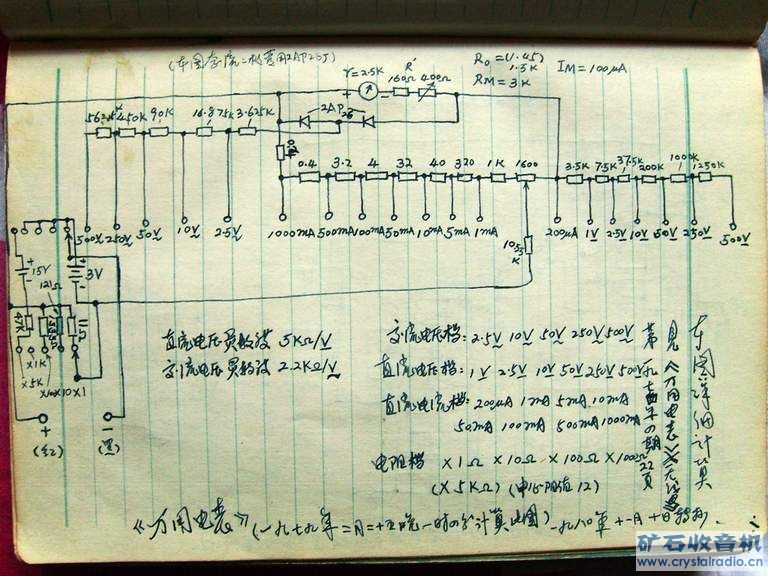 (本图整流二极管用2AP26J)
R₀=(1.45)
1.5K
IM=100μA
RM=3K
r=2.5K
R'
160Ω 400Ω
2AP
26
450K 90K 16.875K 3.625K
0.4 3.2 4 32 40 320 1K 1600
3.5K 7.5K 37.5K 200K 1000K 1250K
500V 250V 50V 10V 2.5V
1000mA 500mA 100mA 50mA 10mA 5mA 1mA
200μA 1V 2.5V 10V 50V 250V 500V
15V
3V
121Ω
47K
11Ω
×1K
×5K
×100 ×10 ×1
+ −
(红) (黑)
直流电压灵敏度 5KΩ/V
交流电压灵敏度 2.2KΩ/V
交流电压档: 2.5V 10V 50V 250V 500V
直流电压档: 1V 2.5V 10V 50V 250V 500V
直流电流档: 200μA 1mA 5mA 10mA
50mA 100mA 500mA 1000mA
电阻档 ×1Ω ×10Ω ×100Ω ×1000Ω
(×5KΩ) (中心阻值12)
本图详细计算
见《万用电表》
22页
《万用电表》(一九七九年二月十五晚一时四分计算此图)
一九八〇年十一月十日转抄.
矿石收音机
www.crystalradio.cn